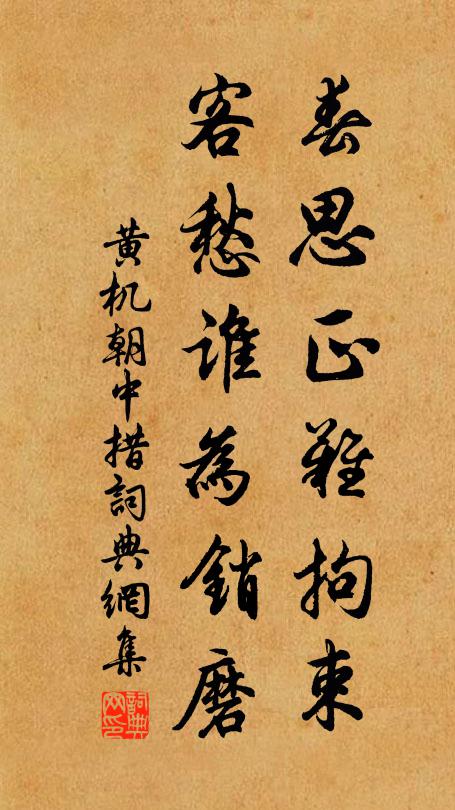 春思正難拘束
客愁誰為銷磨
黄机朝中措詞典網集
詞典网印